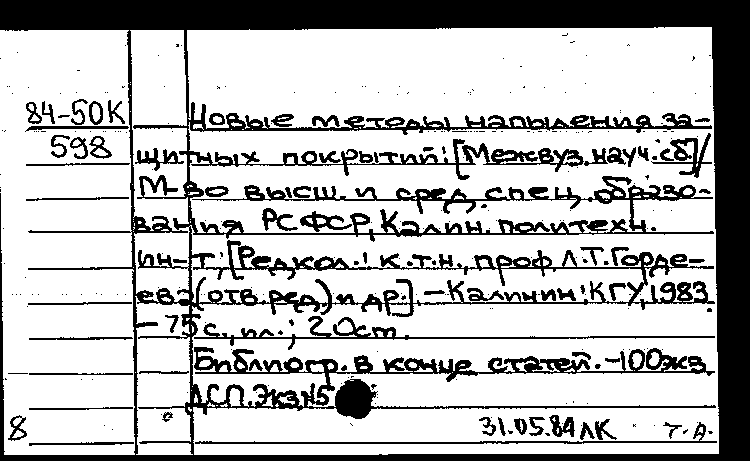 84-50К Новые методы напыления за-
598 щитных покрытий: [Межвуз. науч. сб]/
М-во высш. и сред. спец. образо-
вания РСФСР, Калин. политехн.
ин-т; [Редкол.: к.т.н., проф. Л.Т. Горде-
ева (отв. ред.) и др.]. - Калинин: КГУ, 1983.
- 75 с., ил.; 20 см.
Библиогр. в конце статей. - 100 экз.
ДСП. Экз. №5
8 31.05.84 ЛК т.А.